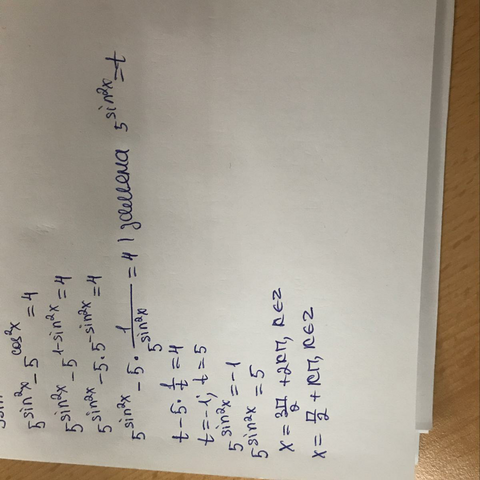 5^{sin²x} - 5^{cos²x} = 4
5^{sin²x} - 5^{1-sin²x} = 4
5^{sin²x} - 5·5^{-sin²x} = 4
5^{sin²x} - 5·\frac{1}{5^{sin²x}} = 4 | замена 5^{sin²x} = t
t - 5·\frac{1}{t} = 4
t = -1; t = 5
5^{sin²x} = -1
5^{sin²x} = 5
x = \frac{3П}{2} + 2kП, k∈Z
x = \frac{П}{2} + kП, k∈Z